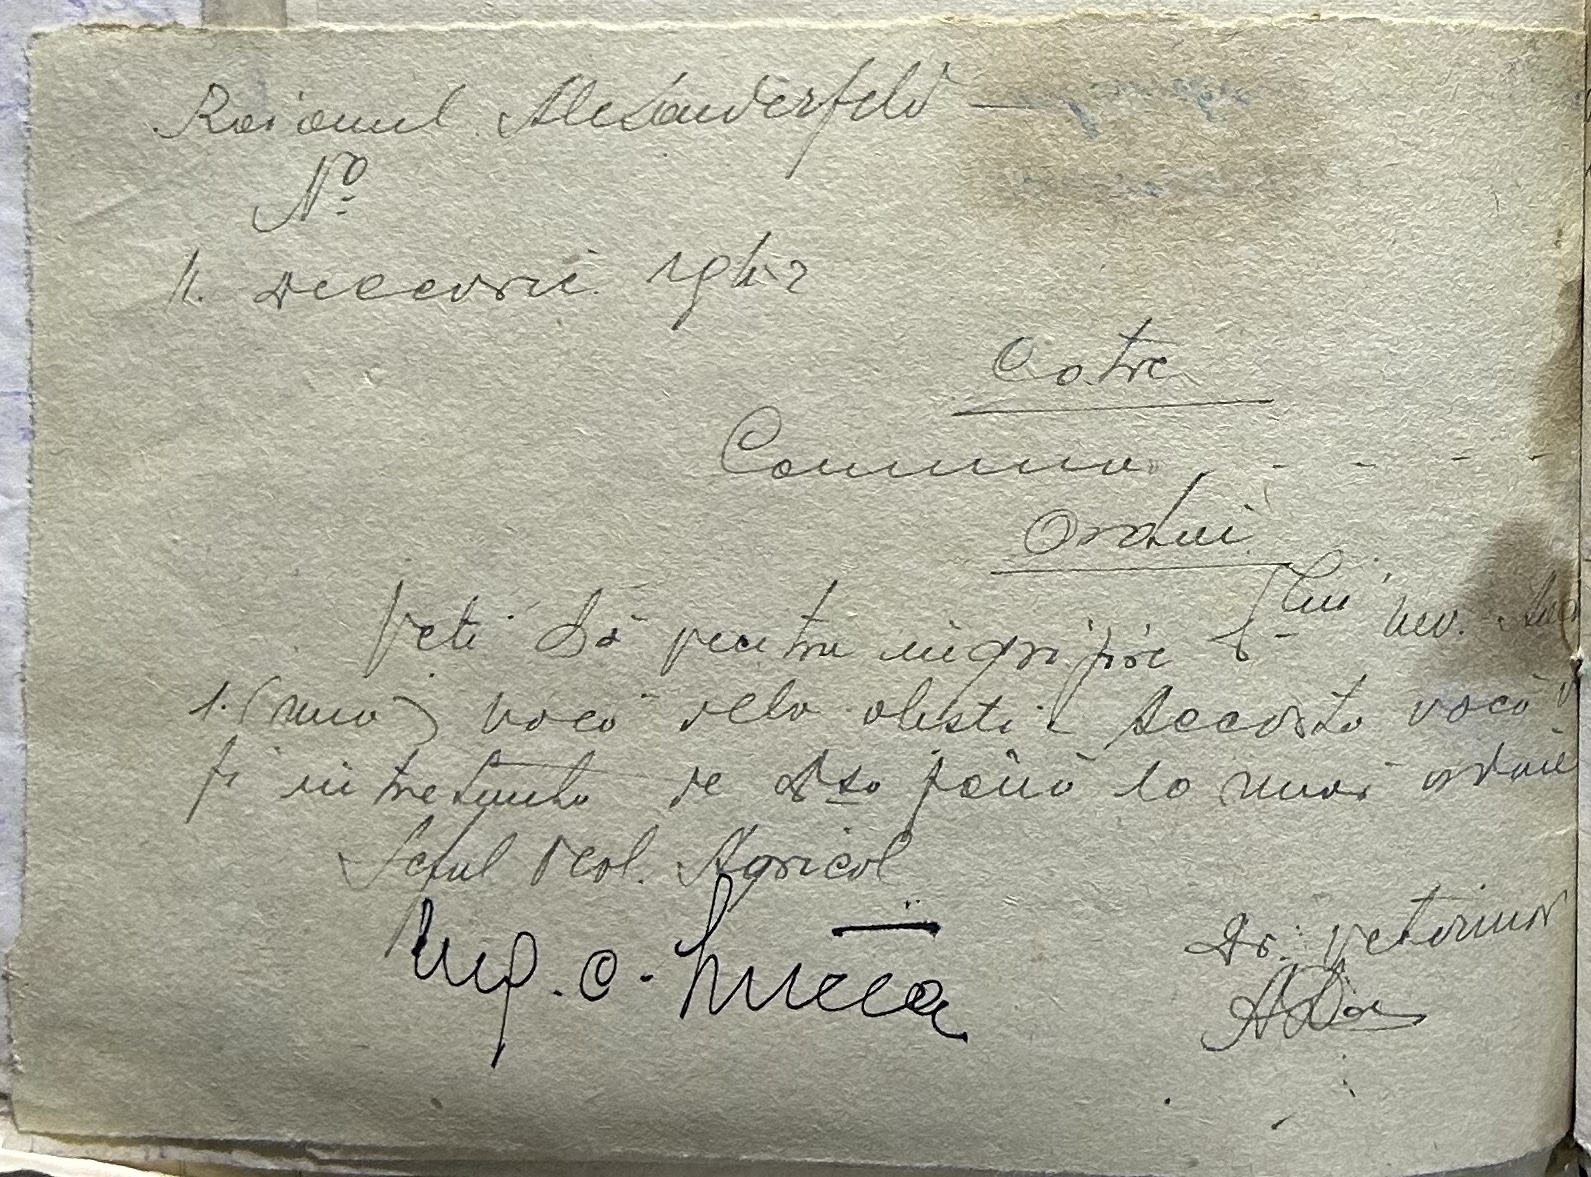 Raionul Alexanderfeld —
No
11. Decevrie 1942
Catre
Comuna - - - -
Ordin
Veti da pentru ingrijire
1. (una) vacă dela obsti aceasta vacă
fi intretinuta de Dsa până la noui ordine
Seful Ocol. Agricol
Ing. C.
Dr. Veterinar